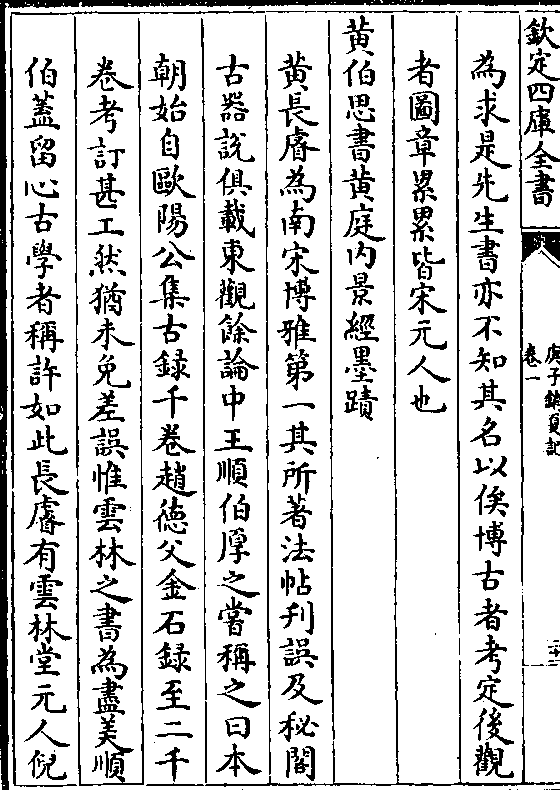 欽定四庫全書
庚子銷夏記
卷一
為求是先生書亦不知其名以俟博古者考定後觀
者圖章累累皆宋元人也
黄伯思書黄庭内景經墨蹟
黄長睿為南宋博雅第一其所著法帖刋誤及秘閣
古器說俱載東觀餘論中王順伯厚之嘗稱之曰本
朝始自歐陽公集古録千卷趙徳父金石録至二千
卷考訂甚工然猶未免差誤惟雲林之書為盡美順
伯蓋留心古學者稱許如此長睿有雲林堂元人倪